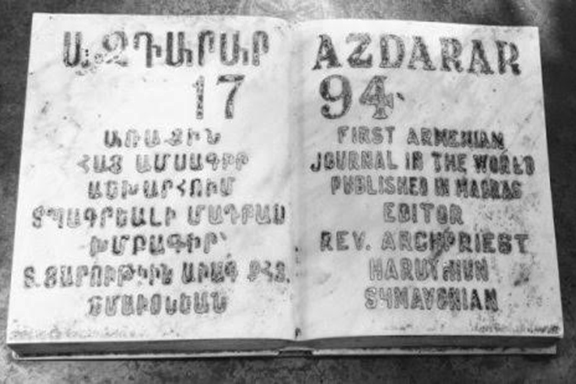 ԱԶԴԱՐԱՐ
17
ԱՌԱՋԻՆ
ՀԱՅ ԱՄՍԱԳԻՐ
ԱՇԽԱՐՀՈՒՄ
ՏՊԱԳՐԵԱԼԻ ՄԱԴՐԱՍ
ԽՄԲԱԳԻՐ՝
Տ. ՅԱՐՈՒԹԻՒՆ ԱՒԱԳ ՔՀՆ.
ՇՄԱՒՈՆԵԱՆ
AZDARAR
94
FIRST ARMENIAN
JOURNAL IN THE WORLD
PUBLISHED IN MADRAS
EDITOR
REV. ARCHPRIEST
HARUTHIUN